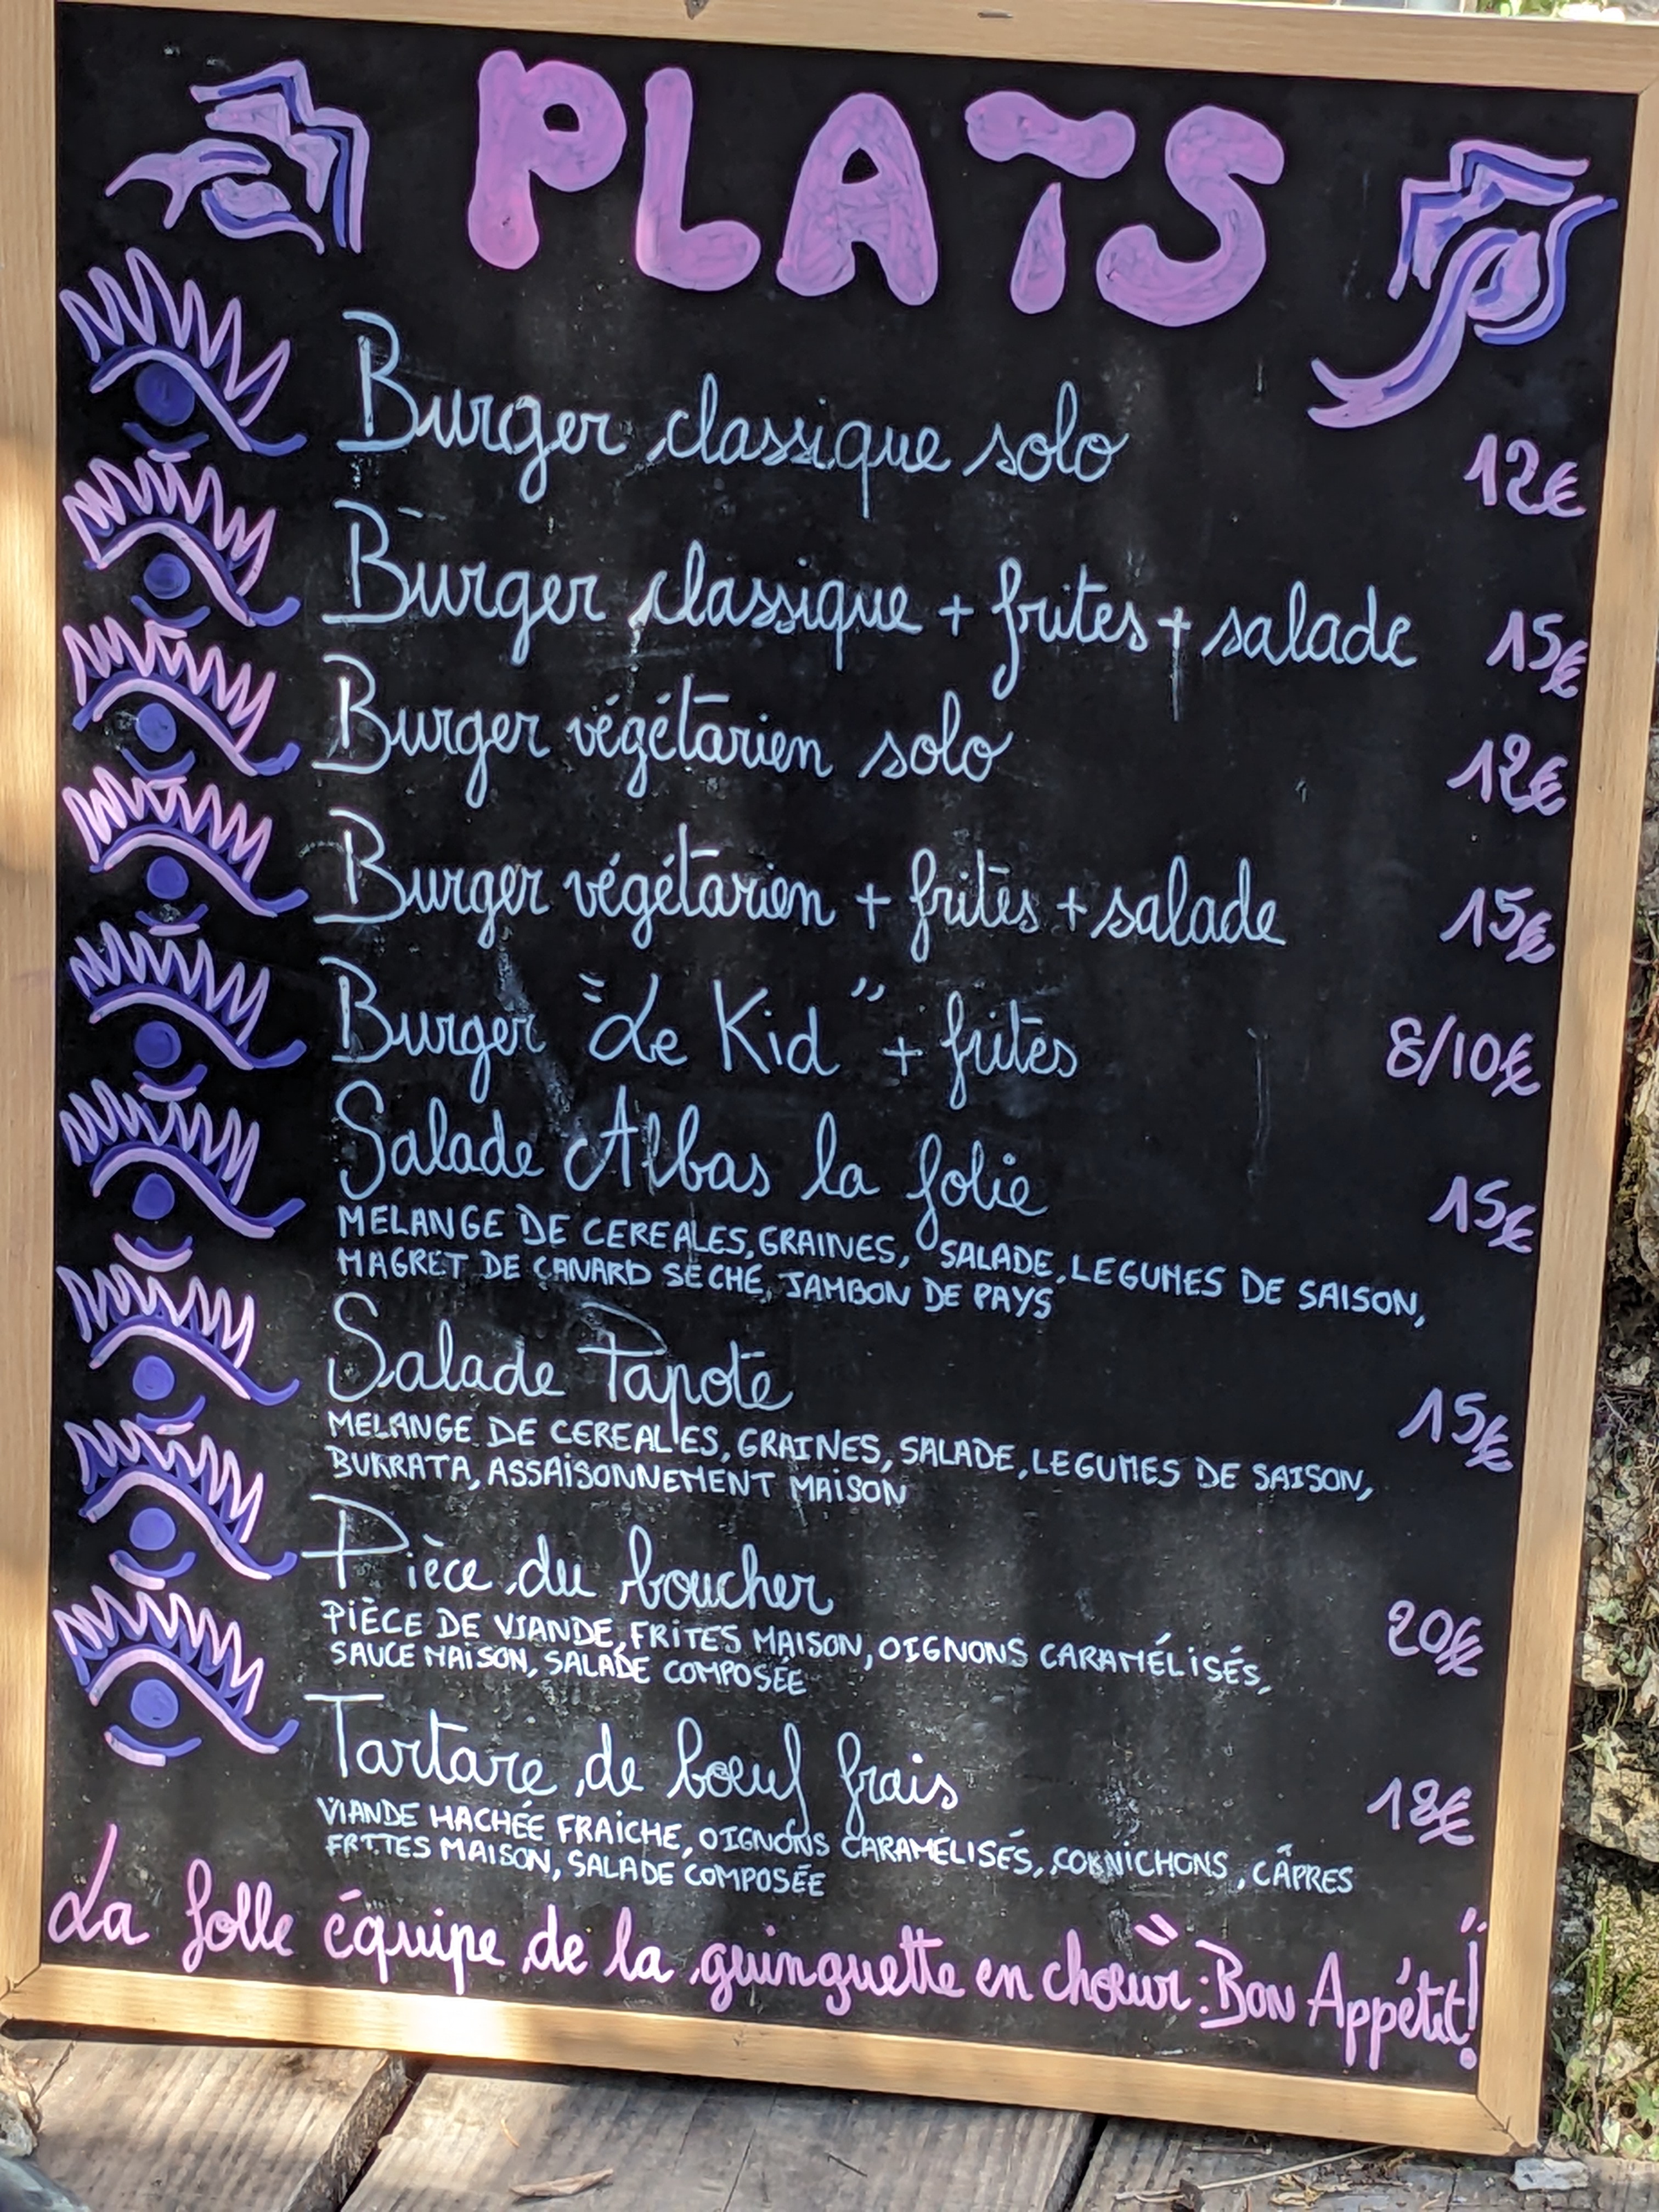 PLATS
Burger classique solo 12€
Burger classique + frites + salade 15€
Burger végétarien solo 12€
Burger végétarien + frites + salade 15€
Burger "Le Kid" + frites 8/10€
Salade Albas la folie 15€
MELANGE DE CEREALES, GRAINES, SALADE, LEGUMES DE SAISON,
MAGRET DE CANARD SECHE, JAMBON DE PAYS
Salade Papote 15€
MELANGE DE CEREALES, GRAINES, SALADE, LEGUMES DE SAISON,
BURRATA, ASSAISONNEMENT MAISON
Pièce du boucher 20€
PIÈCE DE VIANDE, FRITES MAISON, OIGNONS CARAMÉLISÉS,
SAUCE MAISON, SALADE COMPOSÉE
Tartare de bœuf frais 18€
VIANDE HACHÉE FRAICHE, OIGNONS CARAMELISÉS, CORNICHONS, CÂPRES
FRITES MAISON, SALADE COMPOSÉE
La folle équipe de la guinguette en chœur : "Bon Appétit!"